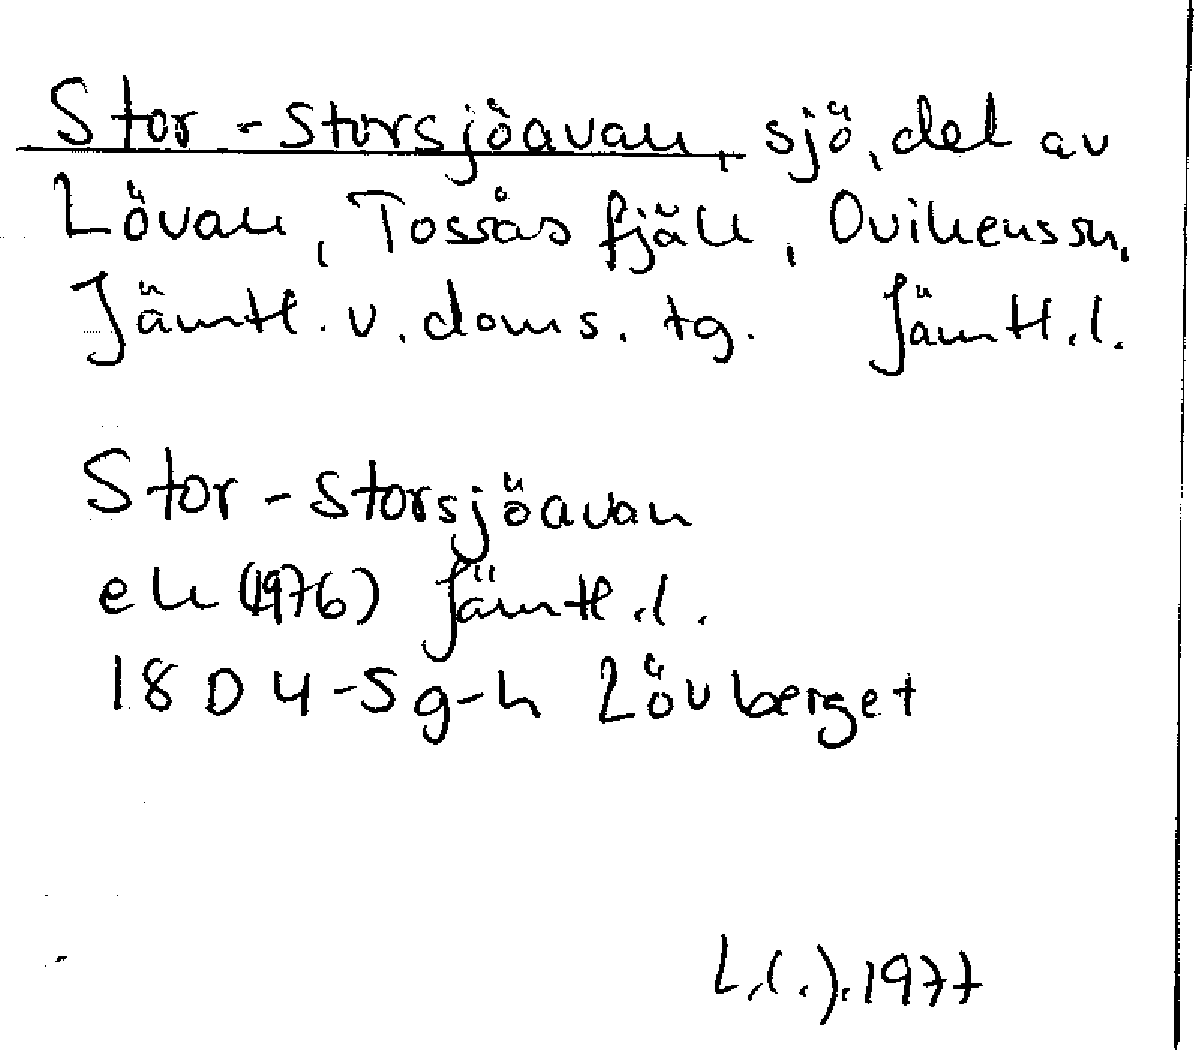 Stor-Storsjöavan, sjö, del av
Lövan, Tossåsfjäll, Ovikens sn,
Jämtl. v. doms. tg. Jämtl. l.
Stor-Storsjöavan
ek (1976) Jämtl. l.
18D 4-5 g-h Lövberget
1977